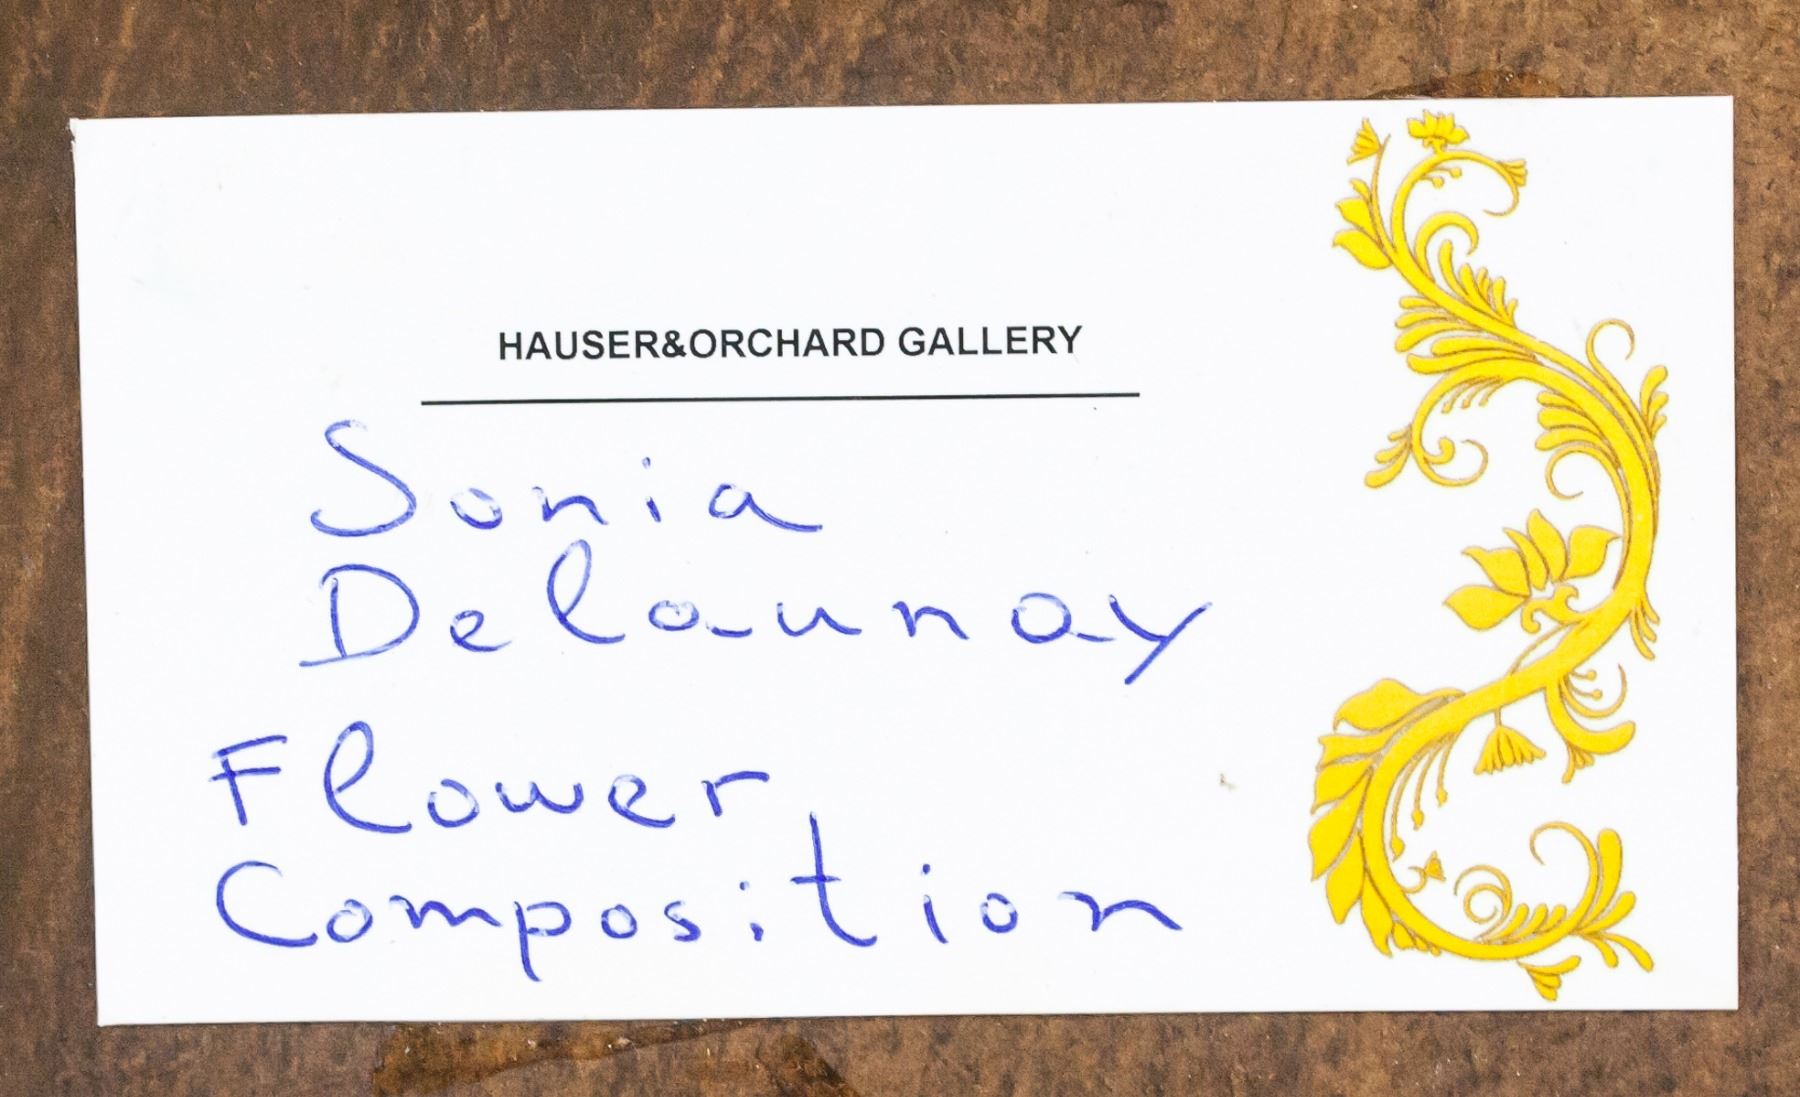 HAUSER&ORCHARD GALLERY
Sonia
Delaunay
Flower
Composition